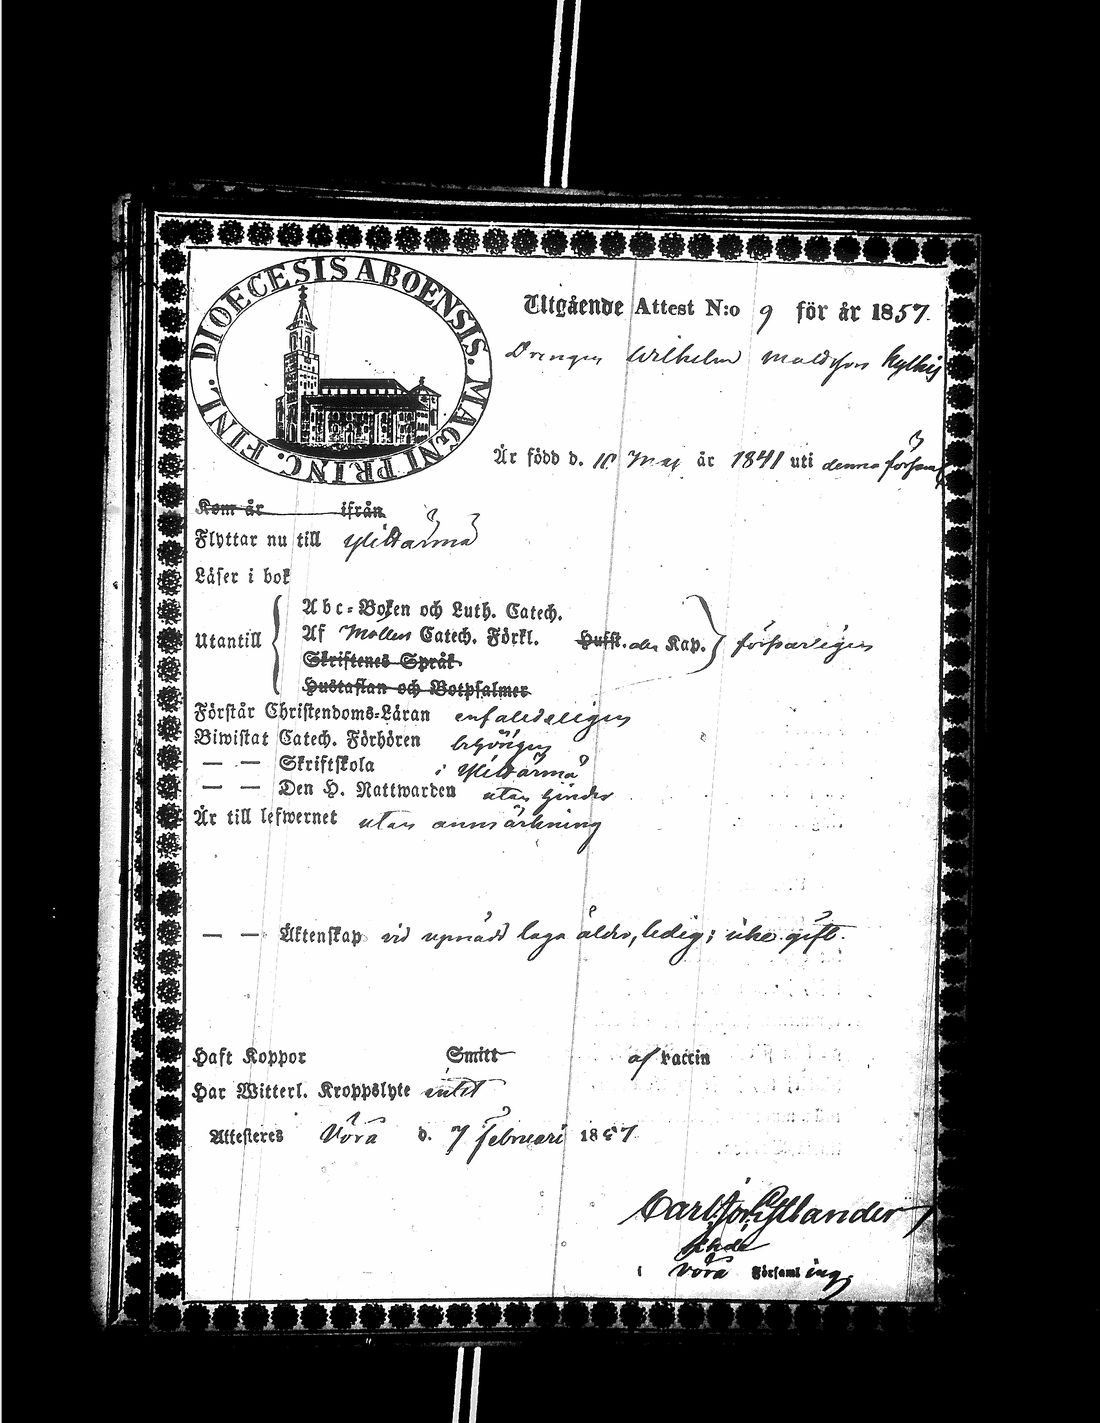 DIOECESIS ABOENSIS. MAGNI PRINC. FINL.
Utgående Attest N:o 9 för år 1857.
Drengen Wilhelm
Är född d. Maj år 1841 uti denna församl
Kom år ifrån
Flyttar nu till Ylihärmä
Läser i bok
Abc-Boken och Luth. Catech.
Utantill Af Catech. Förkl. Husst. Kap. försvarligen
Skriftenes Språk
Hustaflan och Botpsalmer
Förstår Christendoms-Läran enfaldeligen
Biwistat Catech. Förhören behörigen
— — Skriftskola i Ylihärmä
— — Den H. Nattwarden utan hinder
Är till lefwernet utan anmärkning
— — Äktenskap vid upnådd laga ålder, ledig; icke gift.
Haft Koppor Smitt af vaccin
Har Witterl. Kroppslyte intet
Attesteres Vörå d. 7 Februari 1857
Carl
i Vörå Församling